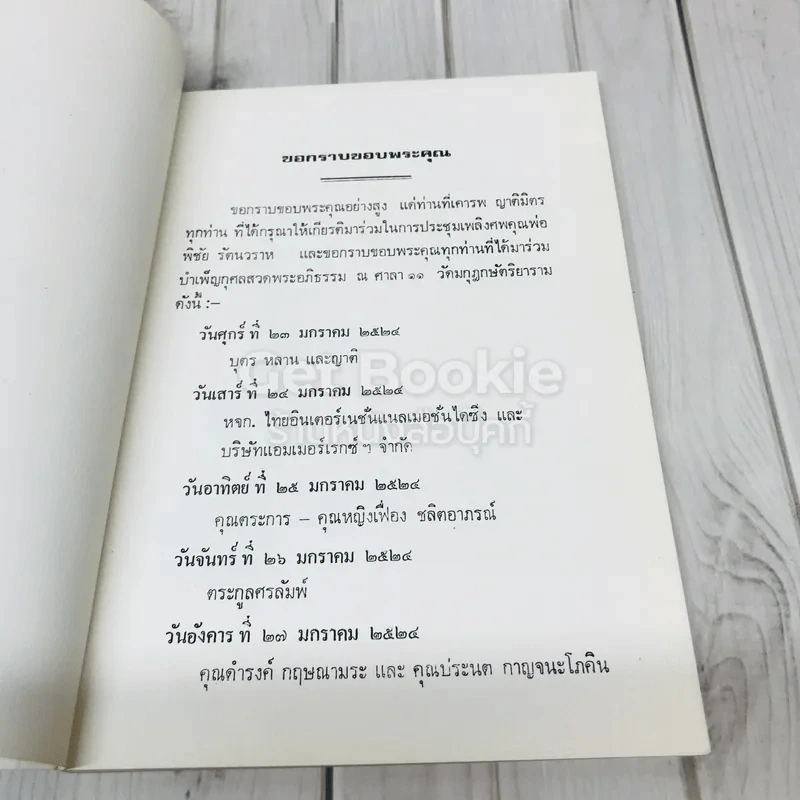 ขอกราบขอบพระคุณ
ขอกราบขอบพระคุณอย่างสูง แด่ท่านที่เคารพ ญาติมิตร
ทุกท่าน ที่ได้กรุณาให้เกียรติมาร่วมในการประชุมเพลิงศพคุณพ่อ
พิชัย รัตนวราห และขอกราบขอบพระคุณทุกท่านที่ได้มาร่วม
บำเพ็ญกุศลสวดพระอภิธรรม ณ ศาลา ๑๑ วัดมกุฎกษัตริยาราม
ดังนี้ :—
วันศุกร์ ที่ ๒๓ มกราคม ๒๕๒๔
บุตร หลาน และญาติ
Get Bookie
วันเสาร์ ที่ ๒๔ มกราคม ๒๕๒๔
หจก. ไทยอินเตอร์เนชั่นแนลเมอชั่นไดซิ่ง และ
ร้านหนังสือบุคกี้
บริษัทแอมเมอร์เรกซ์ ฯ จำกัด
วันอาทิตย์ ที่ ๒๕ มกราคม ๒๕๒๔
คุณตระการ — คุณหญิงเฟื่อง ชลิตอาภรณ์
วันจันทร์ ที่ ๒๖ มกราคม ๒๕๒๔
ตระกูลศรลัมพ์
วันอังคาร ที่ ๒๗ มกราคม ๒๕๒๔
คุณดำรงค์ กฤษณามระ และ คุณประนต กาญจนะโภคิน